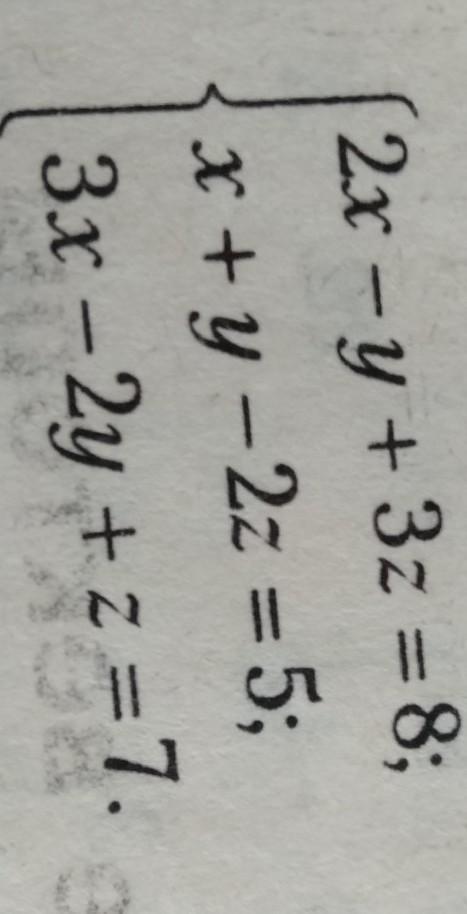 2x − y + 3z = 8;
x + y − 2z = 5;
3x − 2y + z = 7.